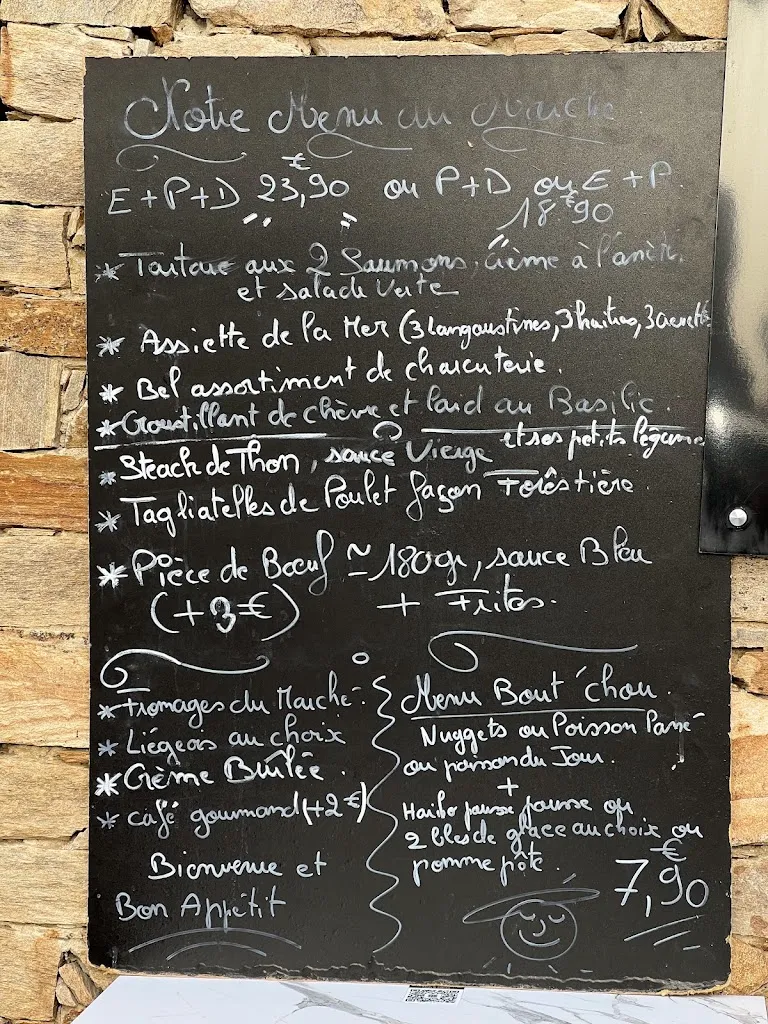 Notre Menu du Marché
E+P+D 23,90 € ou P+D ou E+P
18€90
* Tartare aux 2 Saumons, Crème à l'aneth
et salade Verte
* Assiette de la Mer (3 langoustines, 3 huîtres, 3 crevettes
* Bel assortiment de charcuterie.
* Croustillant de chèvre et lard au Basilic.
* Steack de Thon, sauce Vierge et ses petits légumes
* Tagliatelles de Poulet façon Forêstière.
* Pièce de Bœuf ≃ 180gr, sauce Bleu
(+3€) + Frites.
* Fromages du Marché.
* Liégeois au choix
* Crème Brûlée.
* café gourmand (+2€)
Bienvenue et
Bon Appétit
Menu Bout'chou.
Nuggets ou Poisson Pané
ou poisson du Jour.
+
Haribo pousse pousse ou
2 bles de glace au choix ou
pomme pôte.
7,90 €